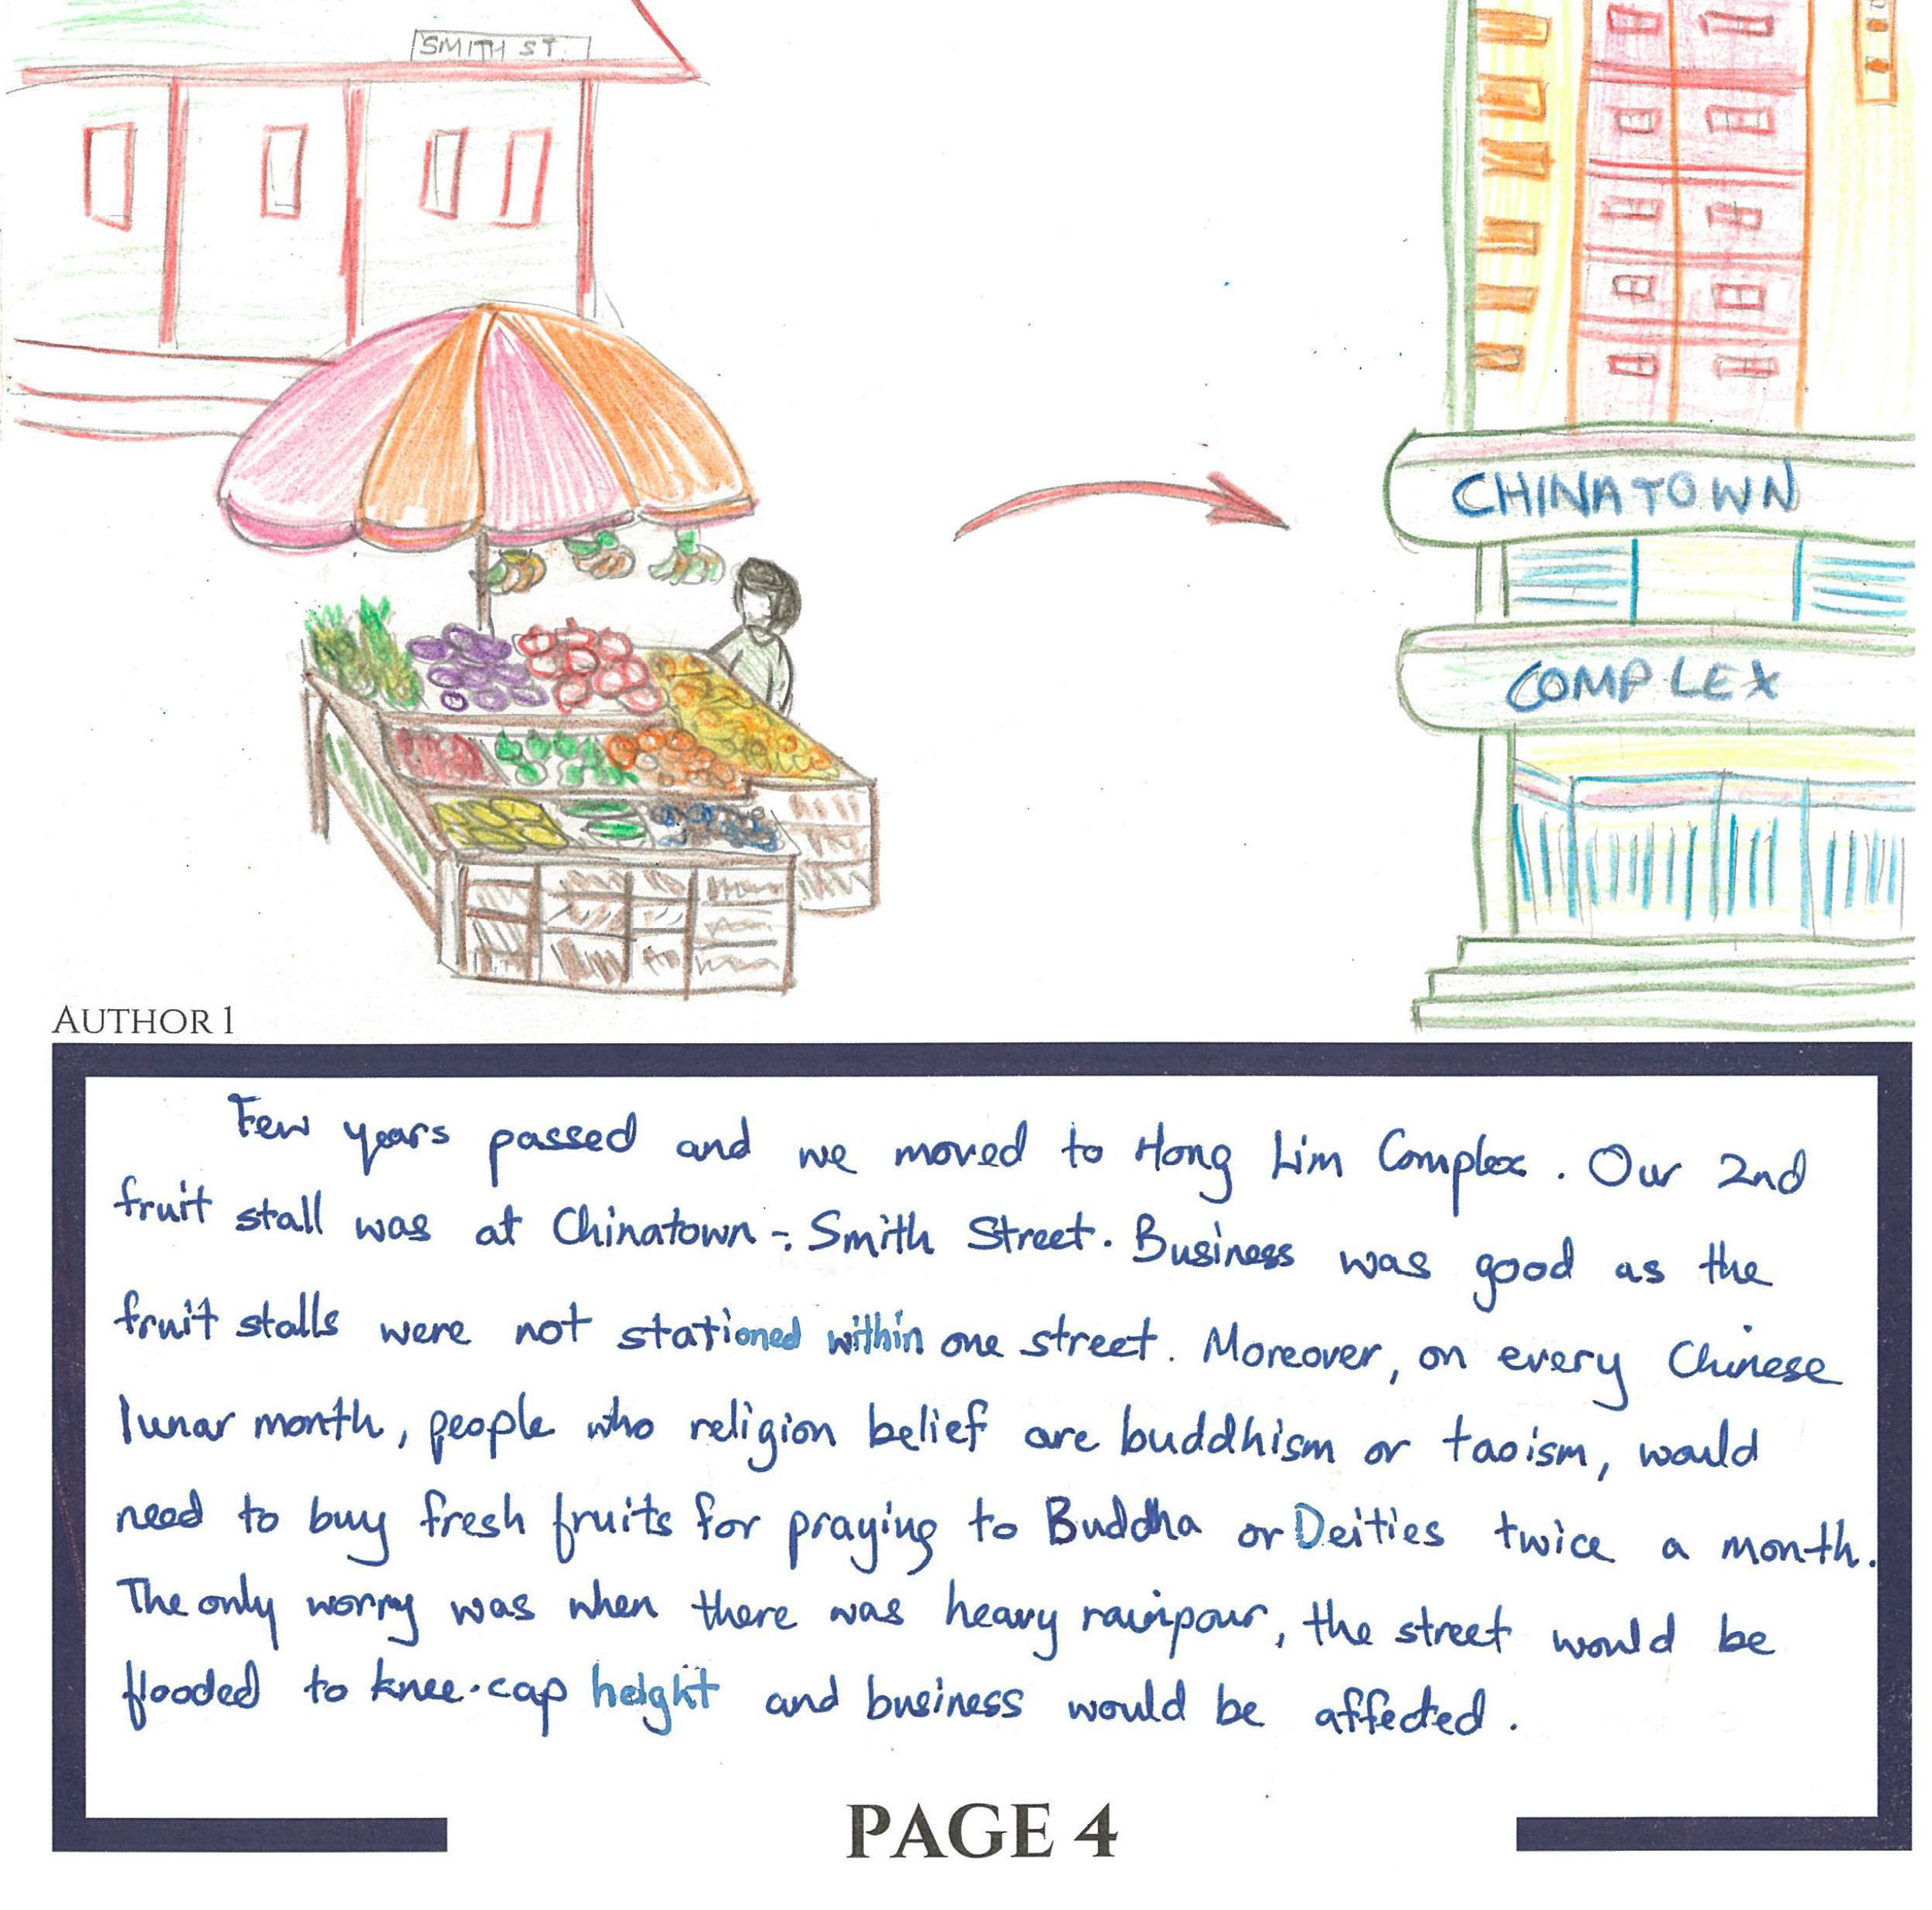 SMITH ST.
CHINATOWN
COMPLEX
AUTHOR 1
Few years passed and we moved to Hong Lim Complex. Our 2nd
fruit stall was at Chinatown -: Smith Street. Business was good as the
fruit stalls were not stationed within one street. Moreover, on every Chinese
lunar month, people who religion belief are buddhism or taoism, would
need to buy fresh fruits for praying to Buddha or Deities twice a month.
The only worry was when there was heavy rainpour, the street would be
flooded to knee-cap height and business would be affected.
PAGE 4